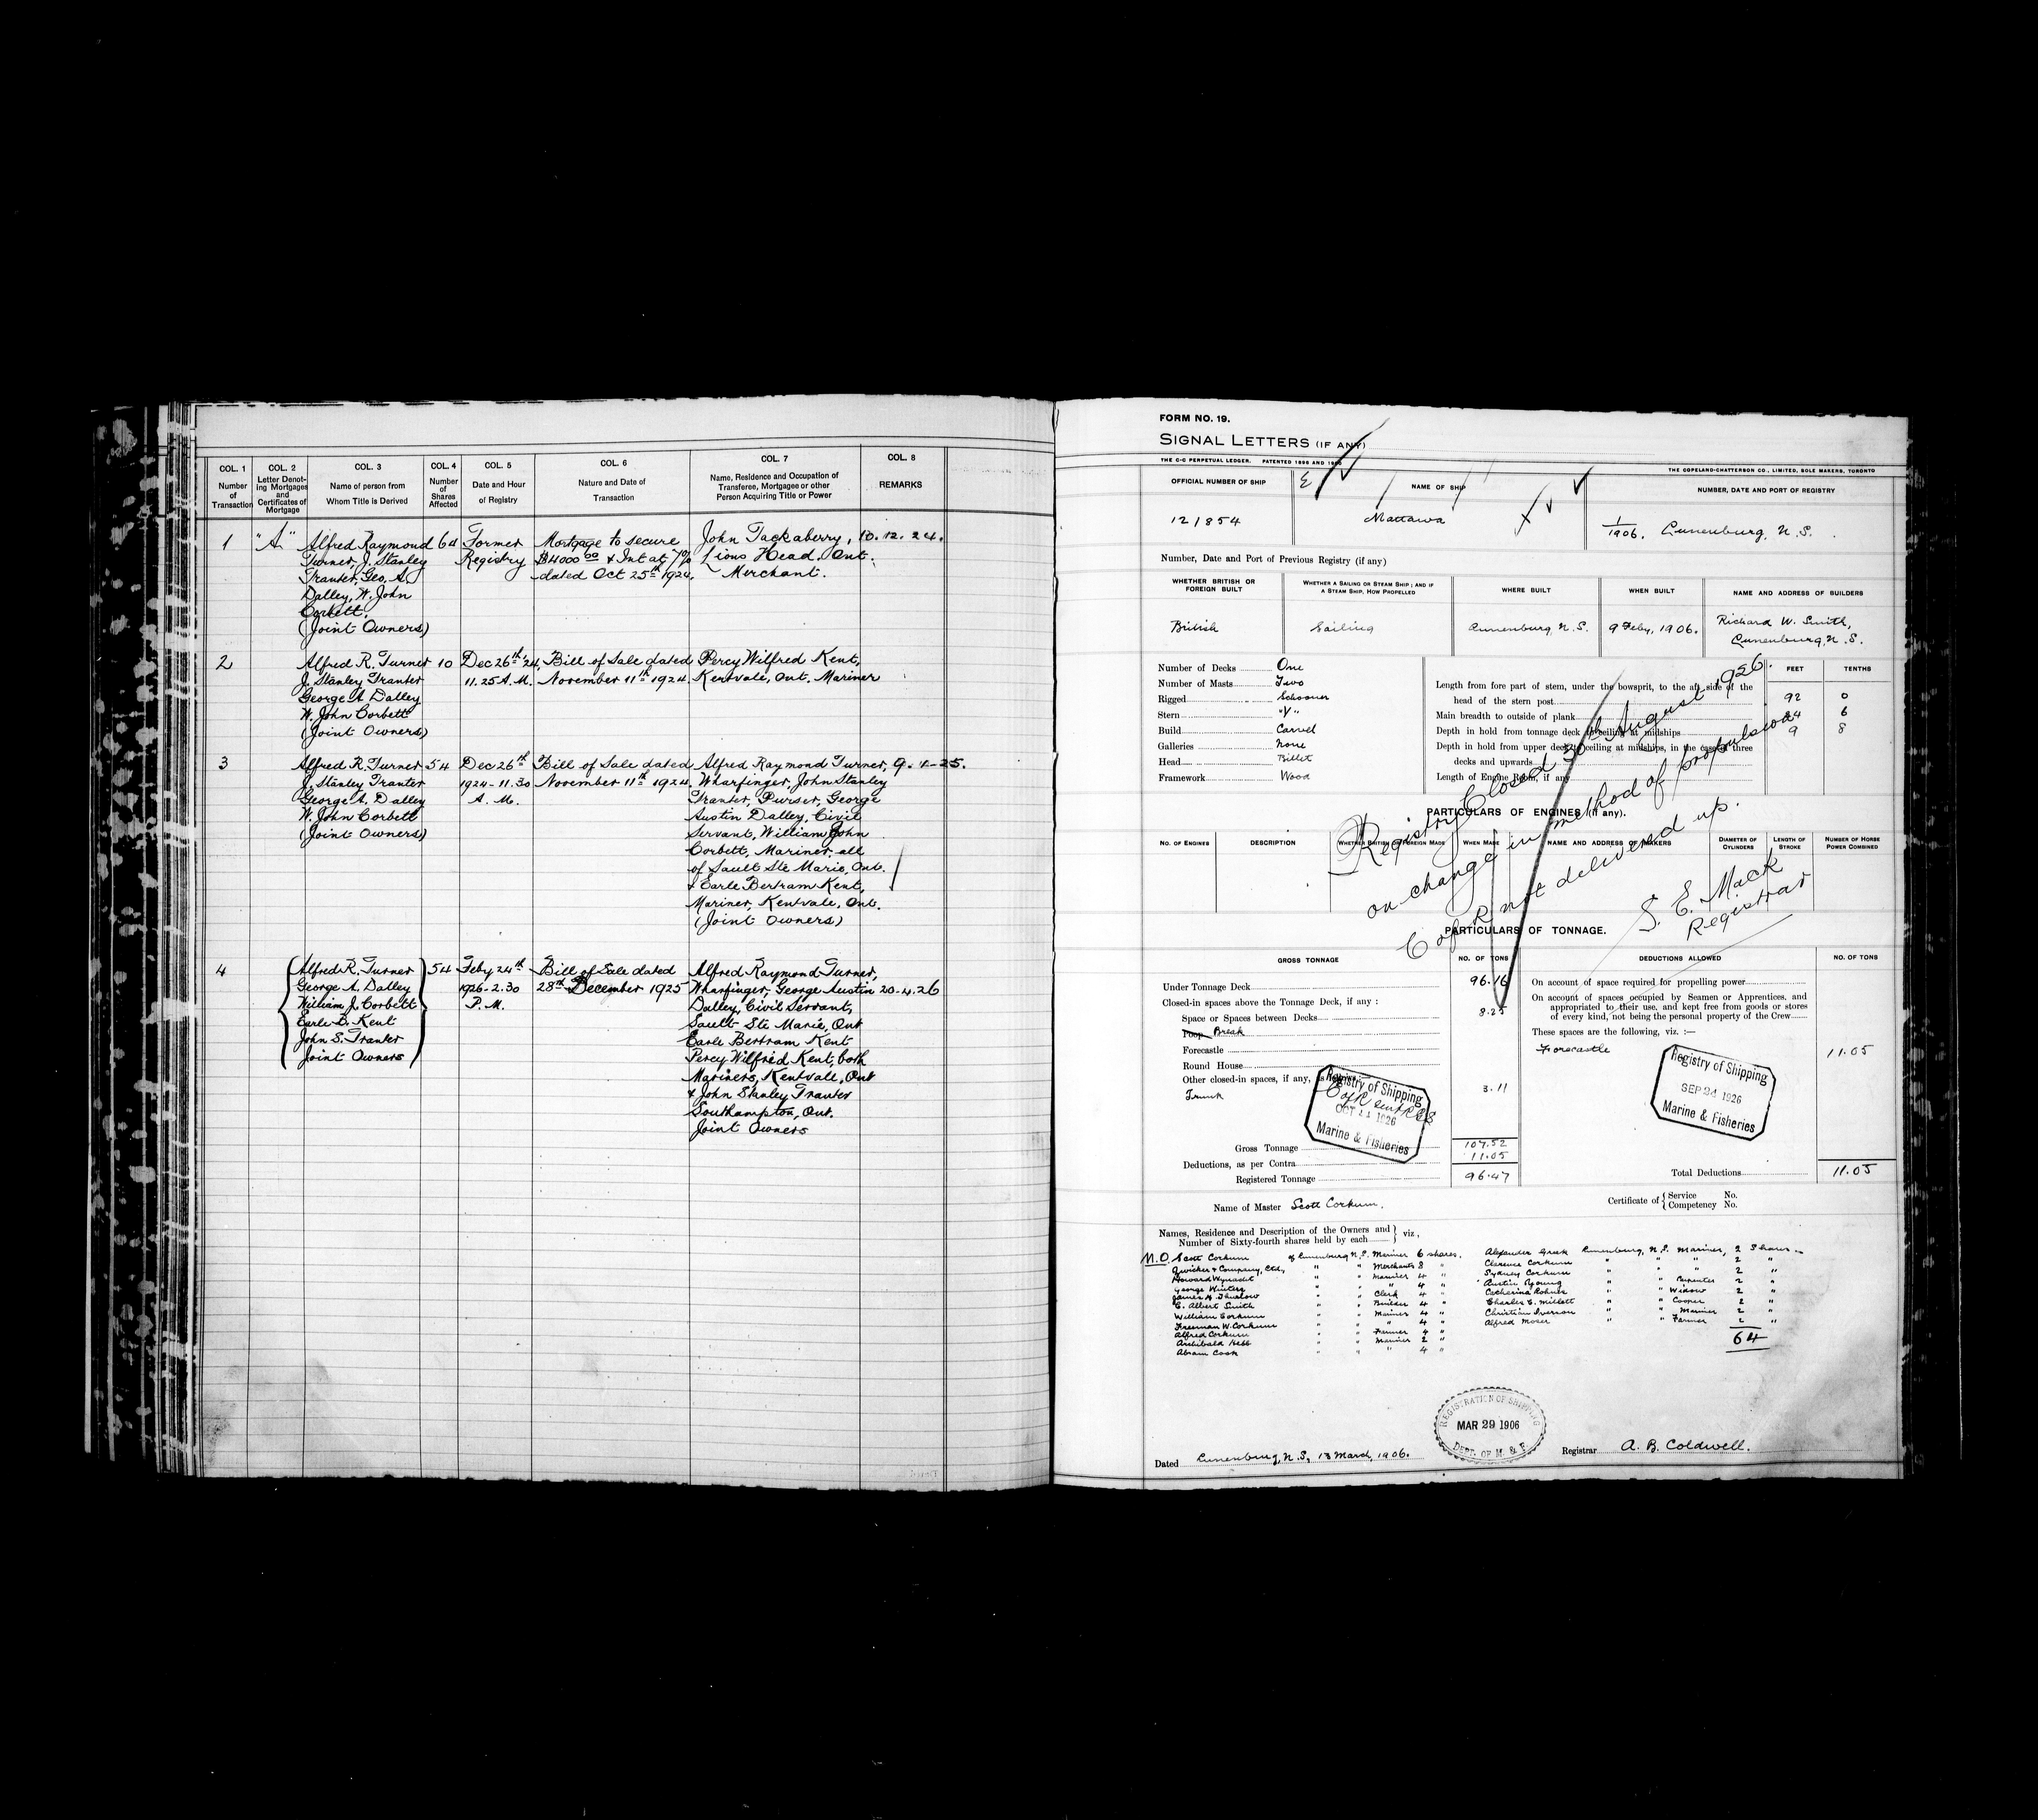 COL. 1 COL. 2 COL. 3 COL. 4 COL. 5 COL. 6 COL. 7 COL. 8
Number of Transaction
Letter Denoting Mortgages and Certificates of Mortgage
Name of person from Whom Title is Derived
Number of Shares Affected
Date and Hour of Registry
Nature and Date of Transaction
Name, Residence and Occupation of Transferee, Mortgagee or other Person Acquiring Title or Power
REMARKS
1 "A" Alfred Raymond 64 Former Mortgage to secure John Tackaberry, 10.12.24.
Turner, J. Stanley Registry $4000 00 & Int at 7% Lions Head. Ont.
Tranter, Geo. A. dated Oct 25th 1924, Merchant.
Dalley, W. John
Corbett.
(Joint Owners)
2 Alfred R. Turner 10 Dec 26th '24, Bill of Sale dated Percy Wilfred Kent,
J. Stanley Tranter 11.25 A.M. November 11th 1924. Kentvale, Ont. Mariner
George A Dalley
W. John Corbett
(Joint Owners)
3 Alfred R. Turner 54 Dec 26th Bill of Sale dated Alfred Raymond Turner, 9.1-25.
J. Stanley Tranter 1924-11.30 November 11th 1924. Wharfinger, John Stanley
George A. Dalley A.M. Tranter, Purser, George
W. John Corbett Austin Dalley, Civil
(Joint Owners) Servant, William John
Corbett, Mariner, all
of Sault Ste Marie, Ont.
& Earle Bertram Kent,
Mariner, Kentvale, Ont.
(Joint Owners)
4 Alfred R. Turner 54 Feby 24th Bill of Sale dated Alfred Raymond Turner,
George A. Dalley 1926-2.30 28th December 1925 Wharfinger, George Austin 20-4.26
William J. Corbett P.M. Dalley, Civil Servant,
Earle B. Kent Sault Ste Marie, Ont
John S. Tranter Earle Bertram Kent
Joint Owners Percy Wilfred Kent, both
Mariners, Kentvale, Ont
& John Stanley Tranter
Southampton, Ont.
Joint Owners
FORM NO. 19.
SIGNAL LETTERS (IF ANY)
THE C-C PERPETUAL LEDGER. PATENTED 1896 AND
THE COPELAND-CHATTERSON CO., LIMITED, SOLE MAKERS, TORONTO
OFFICIAL NUMBER OF SHIP NAME OF SHIP NUMBER, DATE AND PORT OF REGISTRY
121854 Mattawa 1/1906. Lunenburg, N.S.
Number, Date and Port of Previous Registry (if any)
WHETHER BRITISH OR FOREIGN BUILT
WHETHER A SAILING OR STEAM SHIP; AND IF A STEAM SHIP, HOW PROPELLED
WHERE BUILT
WHEN BUILT
NAME AND ADDRESS OF BUILDERS
British Sailing Lunenburg, N.S. 9 Feby, 1906. Richard W. Smith,
Lunenburg, N.S.
Number of Decks One
Number of Masts Two
Rigged Schooner
Stern "V"
Build Carvel
Galleries None
Head Billet
Framework Wood
FEET TENTHS
Length from fore part of stem, under the bowsprit, to the aft side of the
head of the stern post 92 0
Main breadth to outside of plank 24 6
Depth in hold from tonnage deck to ceiling at midships 9 8
Depth in hold from upper deck to ceiling at midships, in the case of three
decks and upwards
Length of Engine Room, if any
Registry Closed 30th August 1926.
on change in method of propulsion
C of R not delivered up.
S. E. Mack
Registrar
PARTICULARS OF ENGINES (if any).
NO. OF ENGINES DESCRIPTION WHETHER BRITISH OR FOREIGN MADE WHEN MADE NAME AND ADDRESS OF MAKERS DIAMETER OF CYLINDERS LENGTH OF STROKE NUMBER OF HORSE POWER COMBINED
PARTICULARS OF TONNAGE.
GROSS TONNAGE NO. OF TONS DEDUCTIONS ALLOWED NO. OF TONS
Under Tonnage Deck 96.16
Closed-in spaces above the Tonnage Deck, if any :
Space or Spaces between Decks 8.25
Poop Break
Forecastle
Round House
Other closed-in spaces, if any, as
Trunk 3.11
Gross Tonnage 107.52
Deductions, as per Contra 11.05
Registered Tonnage 96.47
On account of space required for propelling power
On account of spaces occupied by Seamen or Apprentices, and
appropriated to their use, and kept free from goods or stores
of every kind, not being the personal property of the Crew
These spaces are the following, viz. :—
Forecastle 11.05
Total Deductions 11.05
Registry of Shipping
C of R
OCT 1926
Marine & Fisheries
Registry of Shipping
SEP 24 1926
Marine & Fisheries
Name of Master Scott Corkum.
Certificate of { Service No.
Competency No.
Names, Residence and Description of the Owners and
Number of Sixty-fourth shares held by each } viz,
M.O. Scott Corkum of Lunenburg N.S. Mariner 6 shares.
Zwicker & Company, Ltd, " " Merchants 8 "
Howard Wynacht " " Mariner 4 "
George Winters " " " 4 "
James H. Thurlow " " Clerk 4 "
C. Albert Smith " " Builder 4 "
William Corkum " " Mariner 4 "
Freeman W. Corkum " " " 4 "
Alfred Corkum " " Farmer 4 "
Archibald Hebb " " Mariner 2 "
Abram Cook " " " 4 "
Alexander Greek Lunenburg, N.S. Mariner, 2 Shares
Clarence Corkum " " " 2 "
Sydney Corkum " " " 2 "
Austin Young " " Carpenter 2 "
Catherina " " Widow 2 "
Charles E. Millett " " Cooper 2 "
Christian Iverson " " Mariner 2 "
Alfred Moser " " Farmer 2 "
64
REGISTRATION OF SHIPPING
MAR 29 1906
DEPT. OF M. & F.
Dated Lunenburg, N.S, 13 March, 1906.
Registrar A. B. Coldwell.